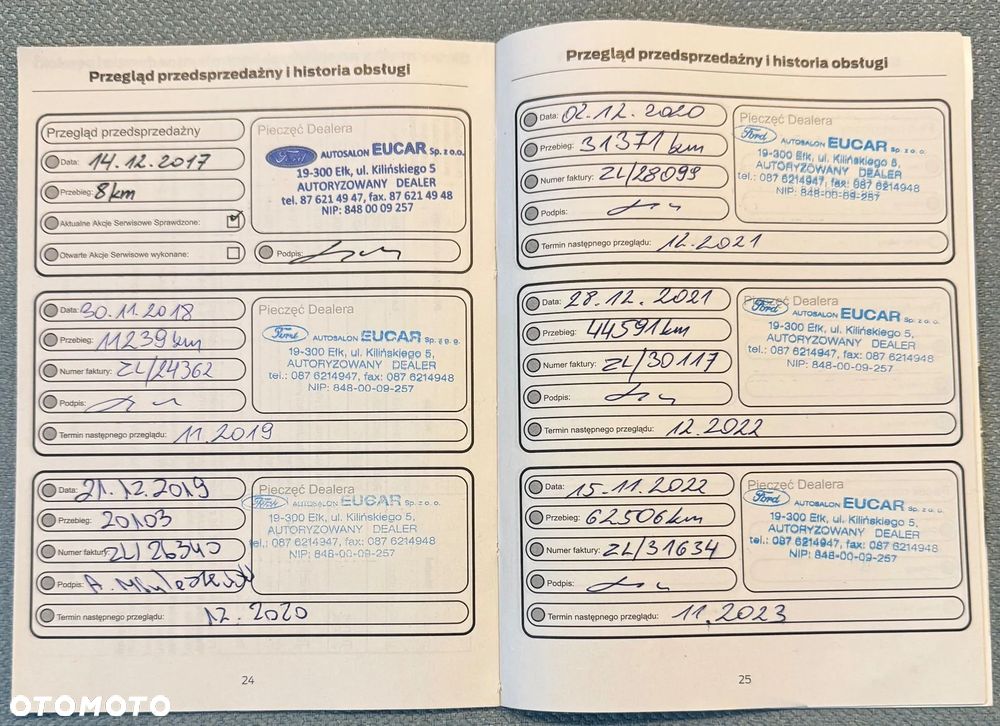 Przegląd przedsprzedażny i historia obsługi
Przegląd przedsprzedażny
Data: 14.12.2017
Przebieg: 8 km
Aktualne Akcje Serwisowe Sprawdzone:
Otwarte Akcje Serwisowe wykonane:
Pieczęć Dealera
Ford AUTOSALON EUCAR Sp. z o.o.
19-300 Ełk, ul. Kilińskiego 5
AUTORYZOWANY DEALER
tel. 87 621 49 47, fax. 87 621 49 48
NIP: 848 00 09 257
Podpis:
Data: 30.11.2018
Przebieg: 11239 km
Numer faktury: ZL/24362
Podpis:
Pieczęć Dealera
Ford AUTOSALON EUCAR Sp. z o.o.
19-300 Ełk, ul. Kilińskiego 5,
AUTORYZOWANY DEALER
tel.: 087 6214947, fax: 087 6214948
NIP: 848-00-09-257
Termin następnego przeglądu: 11.2019
Data: 21.12.2019
Przebieg: 20103
Numer faktury: ZL/26345
Podpis: A.
Pieczęć Dealera
Ford AUTOSALON EUCAR Sp. z o.o.
19-300 Ełk, ul. Kilińskiego 5,
AUTORYZOWANY DEALER
tel.: 087 6214947, fax: 087 6214948
NIP: 848-00-09-257
Termin następnego przeglądu: 12.2020
24
Przegląd przedsprzedażny i historia obsługi
Data: 02.12.2020
Przebieg: 31371 km
Numer faktury: ZL/28099
Podpis:
Pieczęć Dealera
Ford AUTOSALON EUCAR Sp. z o.o.
19-300 Ełk, ul. Kilińskiego 5,
AUTORYZOWANY DEALER
tel.: 087 6214947, fax: 087 6214948
NIP: 848-00-09-257
Termin następnego przeglądu: 12.2021
Data: 28.12.2021
Przebieg: 44591 km
Numer faktury: ZL/30117
Podpis:
Pieczęć Dealera
Ford AUTOSALON EUCAR Sp. z o.o.
19-300 Ełk, ul. Kilińskiego 5,
AUTORYZOWANY DEALER
tel.: 087 6214947, fax: 087 6214948
NIP: 848-00-09-257
Termin następnego przeglądu: 12.2022
Data: 15.11.2022
Przebieg: 62506 km
Numer faktury: ZL/31634
Podpis:
Pieczęć Dealera
Ford AUTOSALON EUCAR Sp. z o.o.
19-300 Ełk, ul. Kilińskiego 5,
AUTORYZOWANY DEALER
tel.: 087 6214947, fax: 087 6214948
NIP: 848-00-09-257
Termin następnego przeglądu: 11.2023
25
OTOMOTO